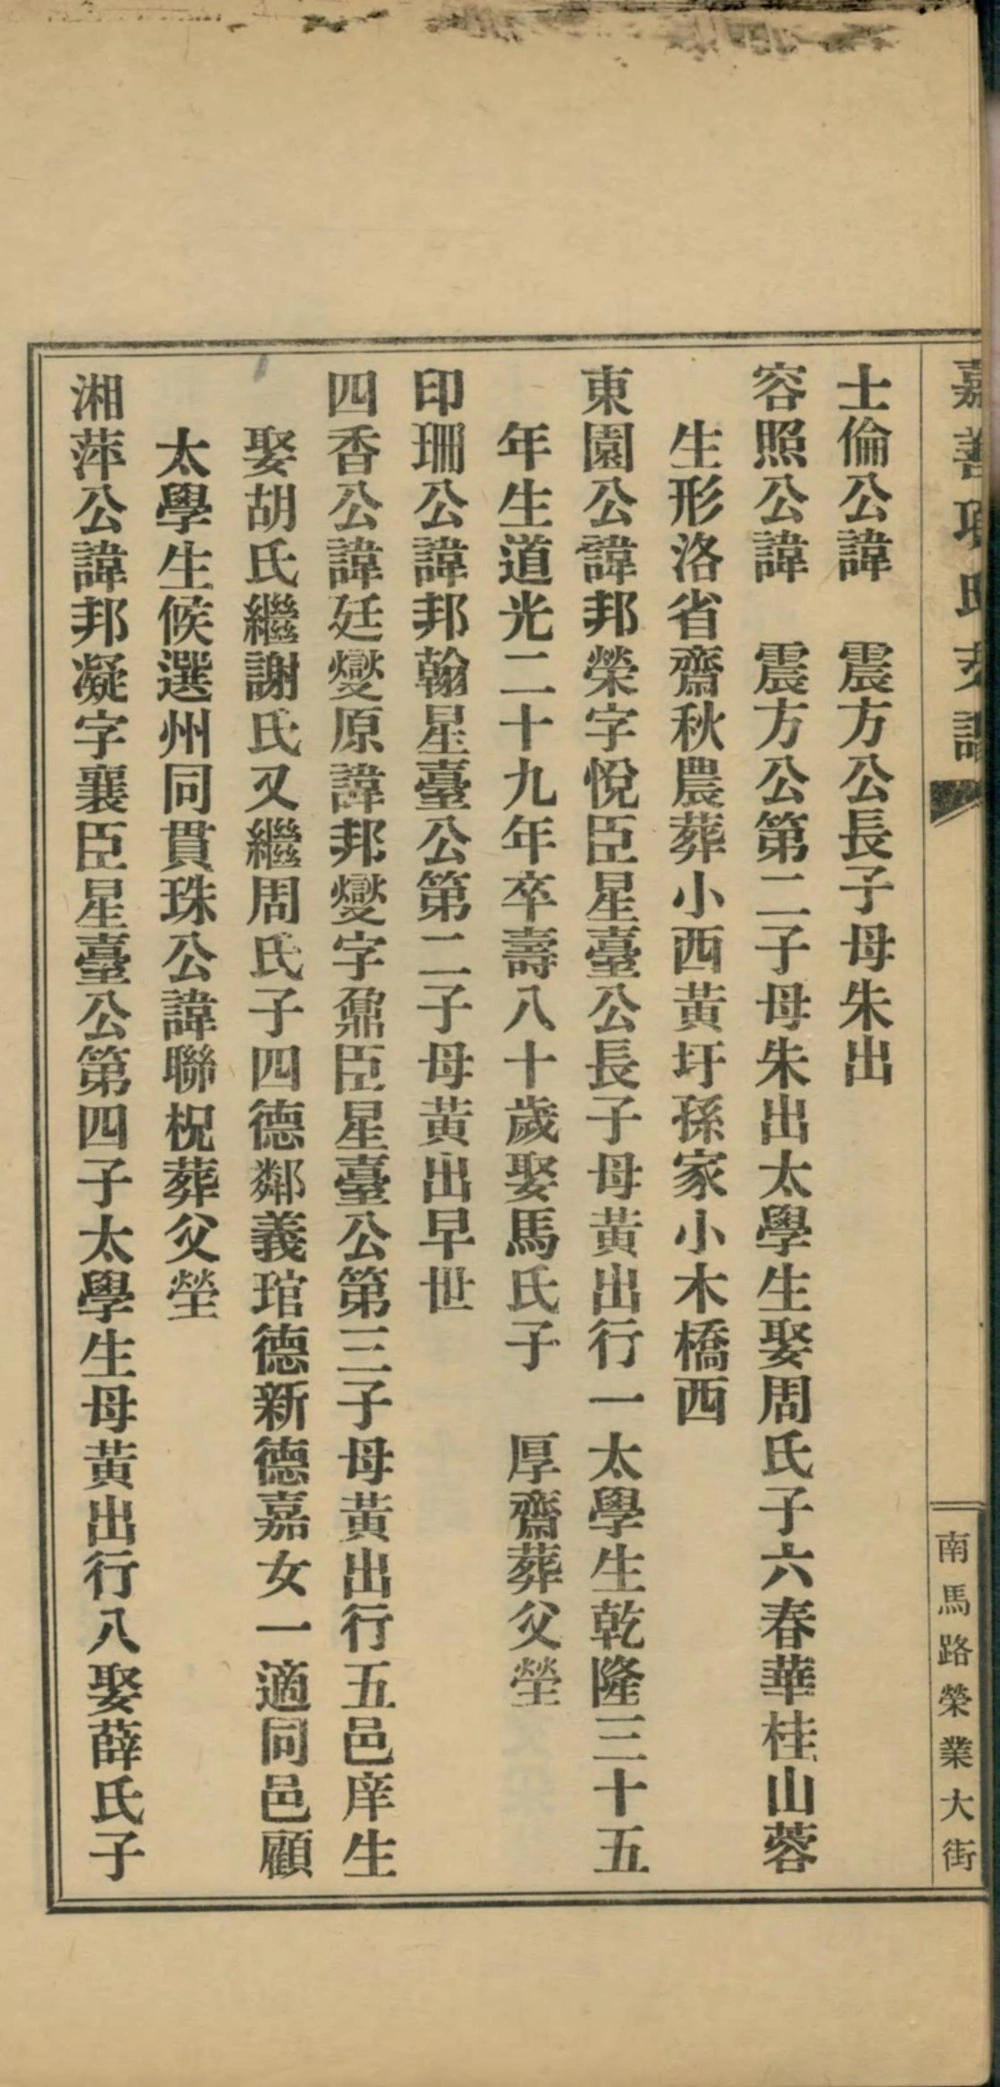 嘉善
士倫公諱　震方公長子母朱出
容照公諱　震方公第二子母朱出太學生娶周氏子六春華桂山蓉
生形洛省齋秋農葬小西黃圩孫家小木橋西
東園公諱邦榮字悅臣星臺公長子母黃出行一太學生乾隆三十五
年生道光二十九年卒壽八十歲娶馬氏子　厚齋葬父塋
印珊公諱邦翰星臺公第二子母黃出早世
四香公諱廷燮原諱邦燮字鼐臣星臺公第三子母黃出行五邑庠生
娶胡氏繼謝氏又繼周氏子四德鄰義琯德新德嘉女一適同邑顧
太學生候選州同貫珠公諱聯柷葬父塋
湘萍公諱邦凝字襄臣星臺公第四子太學生母黃出行八娶薛氏子
南馬路榮業大街